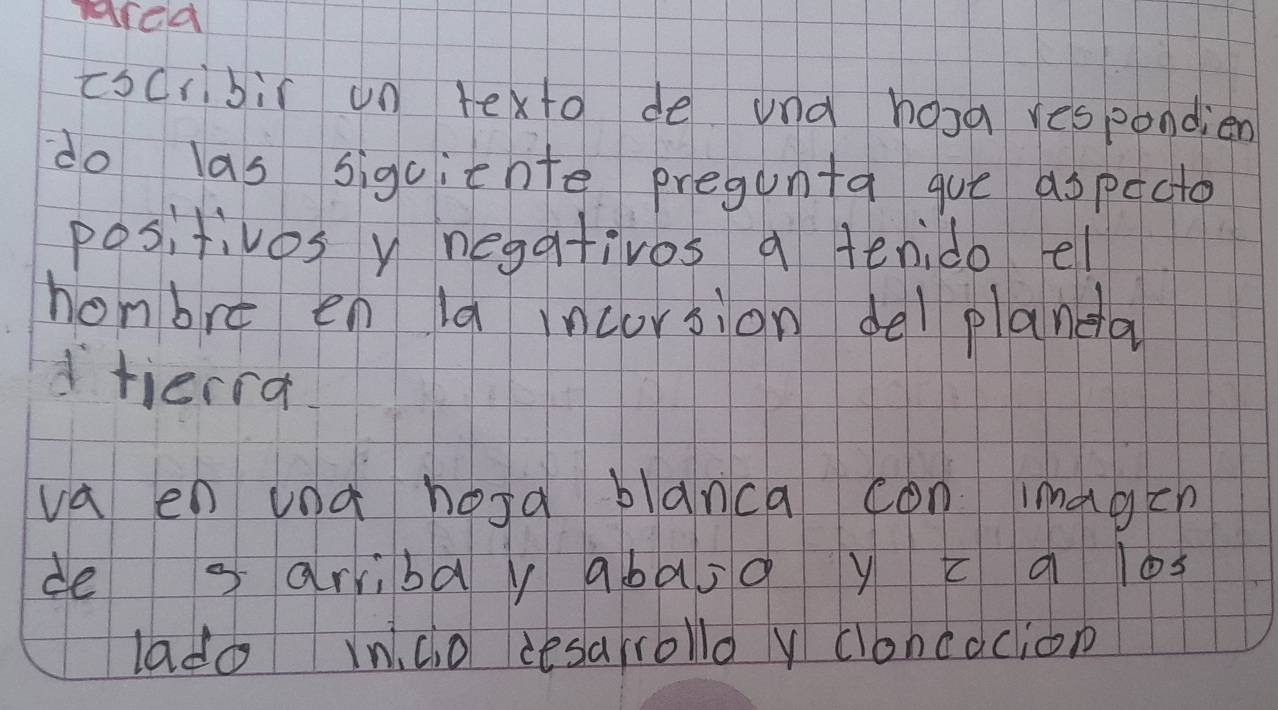 tarea
escribir un texto de una hoja respondien
do las siguiente pregunta que aspecto
positivos y negativos a tenido el
hombre en la incursion del planeta
d tierra
va en una hoja blanca con imagen
de 3 arriba y abajo y 2 a los
lado inicio desarrollo y cloncacion